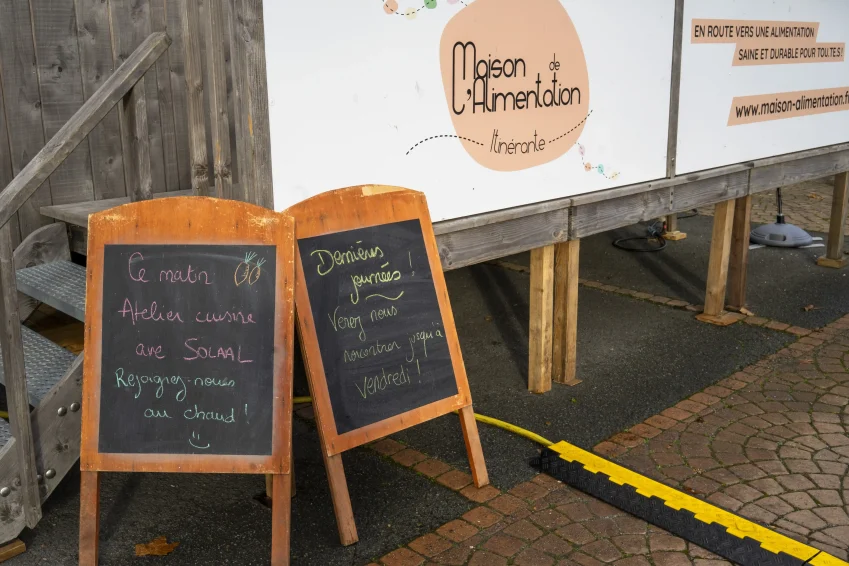 Maison de
l'Alimentation
Itinérante
EN ROUTE VERS UNE ALIMENTATION
SAINE ET DURABLE POUR TOU.TE.S!
www.maison-alimentation.f
Ce matin
Atelier cuisine
ave SOLAAL
Rejoignez-nous
au chaud !
Dernières
journées !
Venez nous
rencontrer jusqu'à
vendredi !